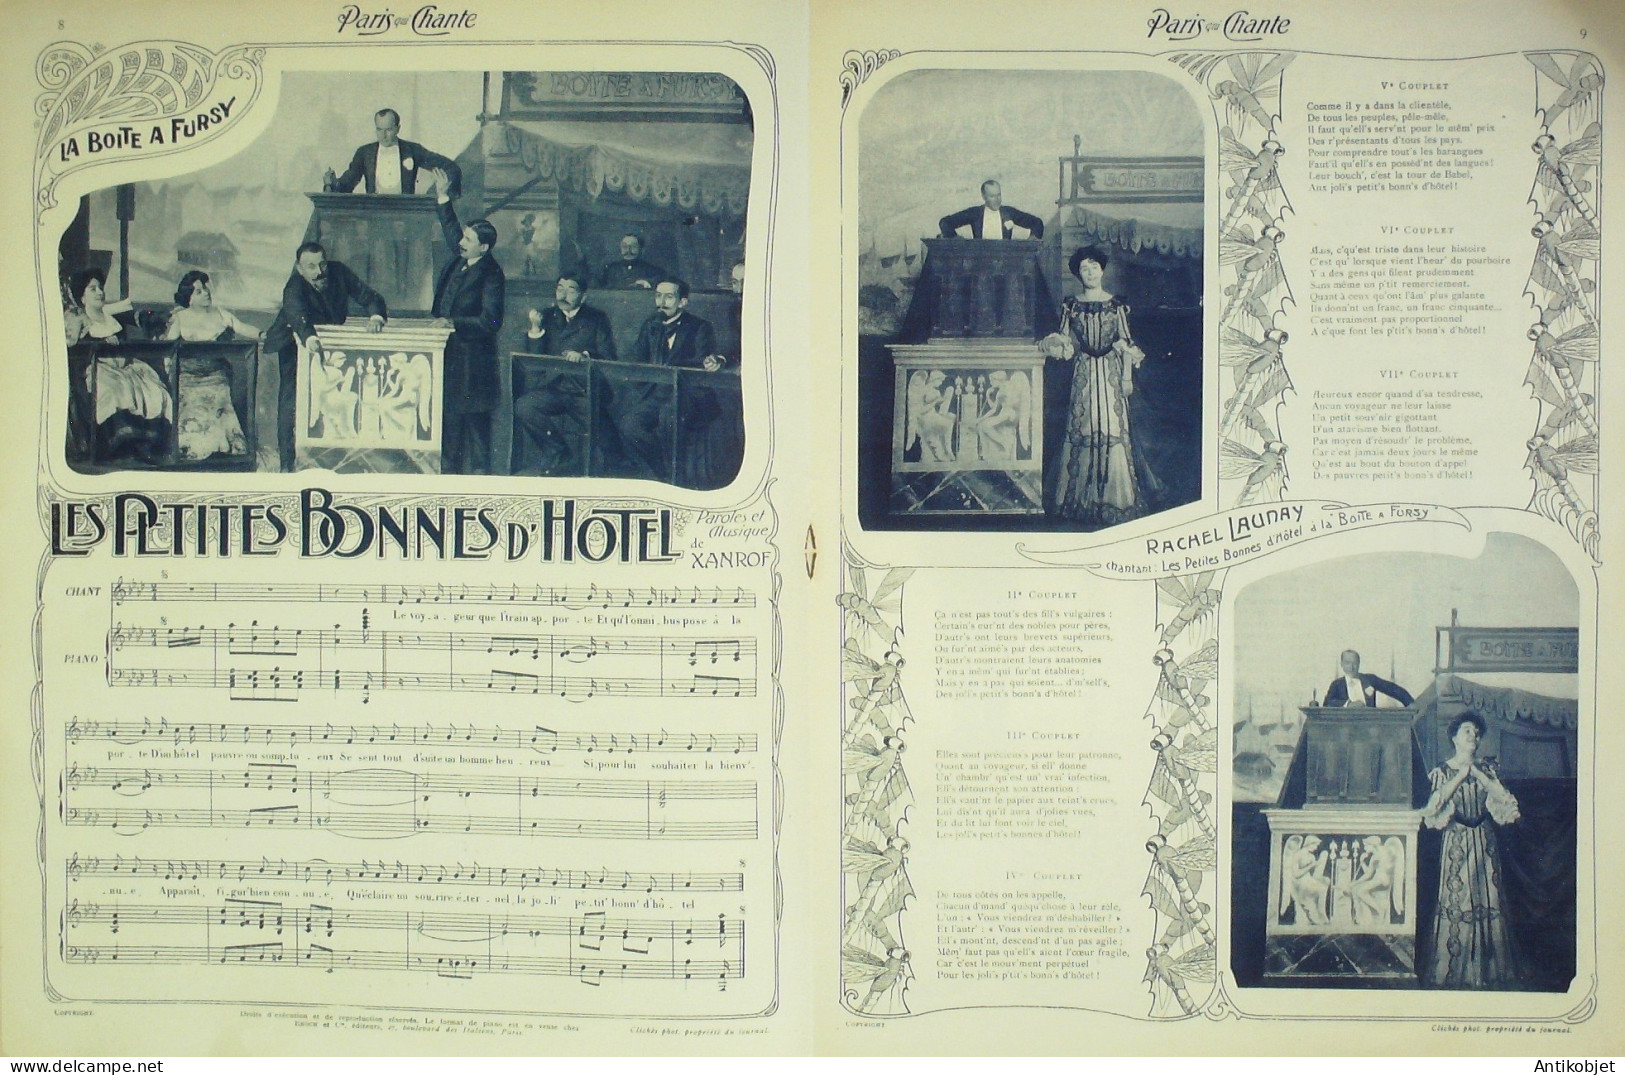 8
Paris qui Chante
LA BOITE A FURSY
BOITE A FURSY
LES PETITES BONNES D'HOTEL
Paroles et
Musique
de
XANROF
CHANT
PIANO
Le voy_a_geur que l'train ap_por_te Et qu'l'omni_bus pose à la
por_te D'un hôtel pauvre ou somp_tu_eux Se sent tout d'suite un homme heu_reux Si, pour lui souhaiter la bienv'_
_nu_e, Apparaît, fi_gur' bien con_nu_e, Qu'éclaire un sou_rire é_ter_nel, la jo_li' pe_tit' bonn' d'hô_tel
COPYRIGHT.
Droits d'exécution et de reproduction réservés. Le format de piano est en vente chez
ENOCH et Cie, éditeurs, 27, boulevard des Italiens, Paris
Clichés phot. propriété du journal.
Paris qui Chante
9
BOITE A FUR
Ve COUPLET
Comme il y a dans la clientèle,
De tous les peuples, pêle-mêle,
Il faut qu'ell's serv'nt pour le mêm' prix
Des r'présentants d'tous les pays.
Pour comprendre tout's les harangues
Faut'il qu'ell's en possèd'nt des langues!
Leur bouch', c'est la tour de Babel,
Aux joli's petit's bonn's d'hôtel!
VIe COUPLET
Mais, c'qu'est triste dans leur histoire
C'est qu' lorsque vient l'heur' du pourboire
Y a des gens qui filent prudemment
Sans même un p'tit remerciement.
Quant à ceux qu'ont l'âm' plus galante
Ils donn'nt un franc, un franc cinquante...
C'est vraiment pas proportionnel
A c'que font les p'tit's bonn's d'hôtel!
VIIe COUPLET
Heureux encor quand d'sa tendresse,
Aucun voyageur ne leur laisse
Un petit souv'nir gigottant
D'un atavisme bien flottant.
Pas moyen d'résoudr' le problème,
Car c'est jamais deux jours le même
Qu'est au bout du bouton d'appel
Des pauvres petit's bonn's d'hôtel!
RACHEL LAUNAY
chantant: Les Petites Bonnes d'Hôtel à la "BOITE A FURSY"
IIe COUPLET
Ça n'est pas tout's des fill's vulgaires:
Certain's eur'nt des nobles pour pères,
D'autr's ont leurs brevets supérieurs,
Ou fur'nt aimé's par des acteurs,
D'autr's montraient leurs anatomies
Y en a mêm' qui fur'nt établies;
Mais y en a pas qui soient... d'm'sell's,
Des joli's petit's bonn's d'hôtel!
IIIe COUPLET
Elles sont précieus's pour leur patronne,
Quant au voyageur, si ell' donne
Un' chambr' qu'est un' vrai' infection,
Ell's détournent son attention:
Ell's vant'nt le papier aux teint's crues,
Lui dis'nt qu'il aura d'jolies vues,
Et du lit lui font voir le ciel,
Les joli's petit's bonnes d'hôtel!
IVe COUPLET
De tous côtés on les appelle,
Chacun d'mand' quéqu'chose à leur zèle,
L'un: « Vous viendrez m'déshabiller? »
Et l'autr': « Vous viendrez m'réveiller? »
Ell's mont'nt, descend'nt d'un pas agile;
Mêm' faut pas qu'ell's aient l'cœur fragile,
Car c'est le mouv'ment perpétuel
Pour les joli's p'tit's bonn's d'hôtel!
BOITE A FU
COPYRIGHT
Clichés phot. propriété du journal.
Antikobjet - Delcampe.net